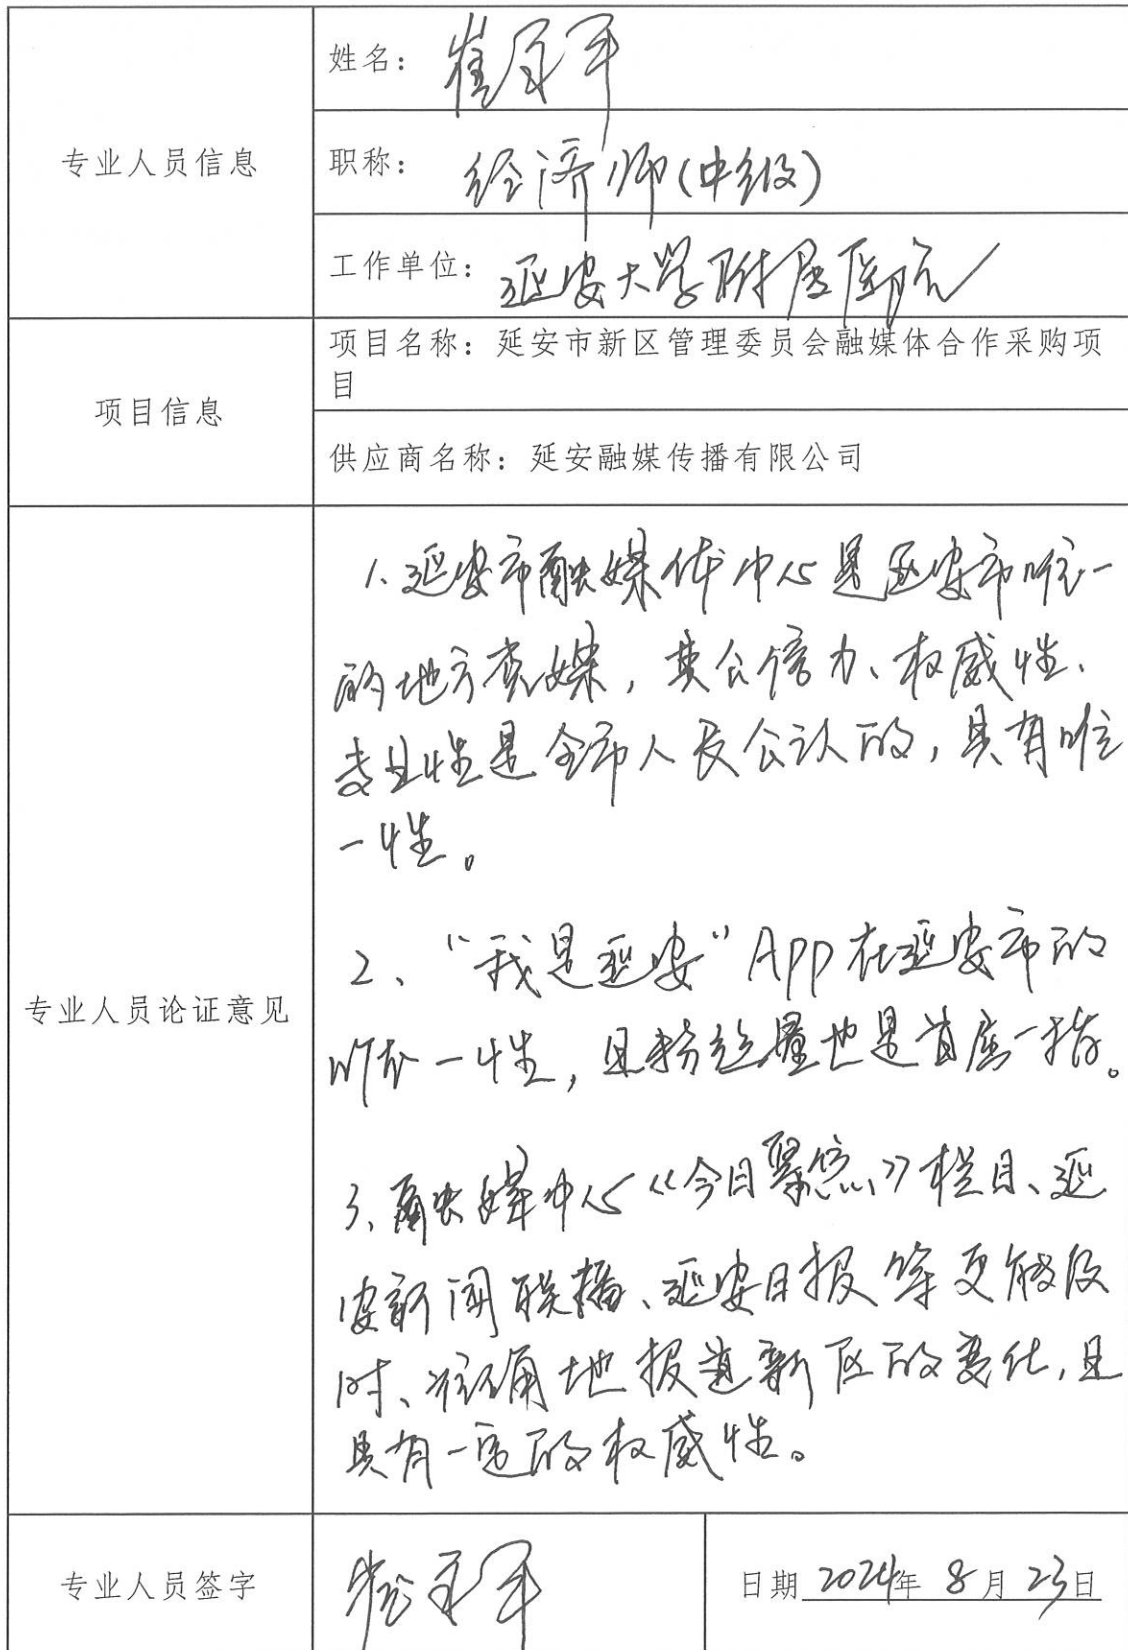 专业人员信息
姓名：崔
职称：经济师(中级)
工作单位：延安大学附属医院
项目信息
项目名称：延安市新区管理委员会融媒体合作采购项
目
供应商名称：延安融媒传播有限公司
专业人员论证意见
1、延安市融媒体中心是延安市唯一
的地方党媒，其公信力、权威性、
专业性是全市人民公认的，具有唯
一性。
2、“我是延安”App在延安市的
唯一性，且粉丝量也是首屈一指。
3、融媒中心《今日聚焦》栏目、延
安新闻联播、延安日报等更能及
时、准确地报道新区的变化，且
具有一定的权威性。
专业人员签字
日期 2024年 8月 23日